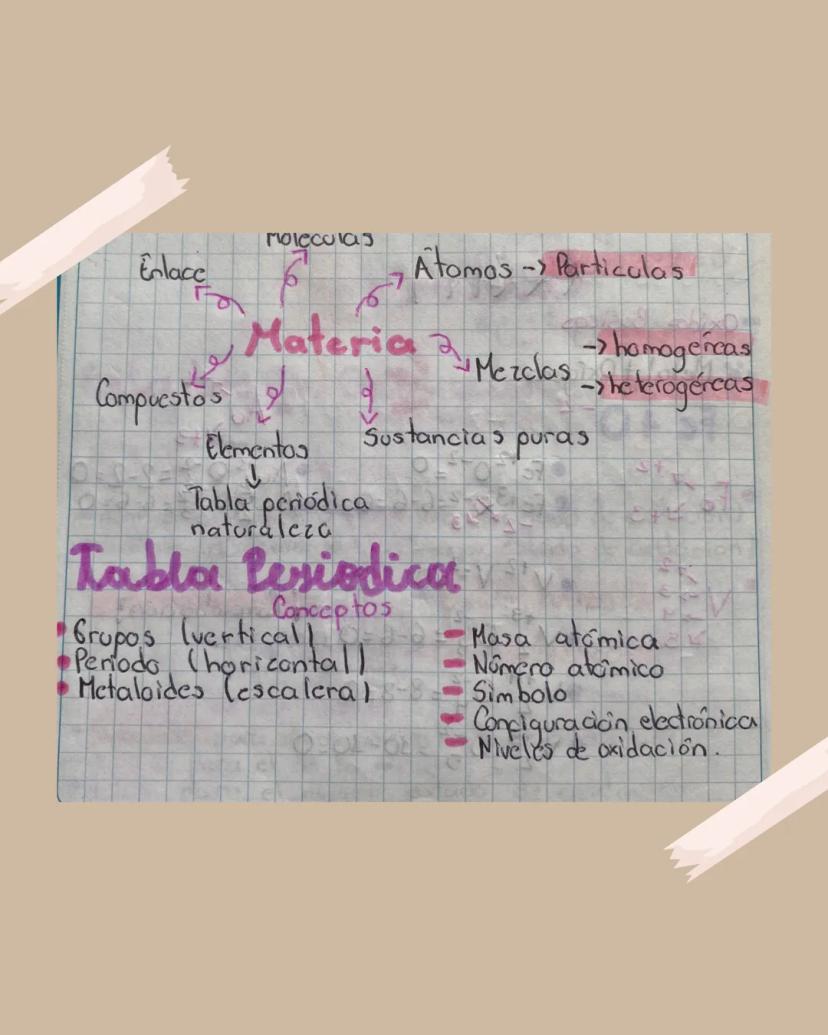 Moleculas
Enlace
Átomos -> Particulas
Materia
Mezclas
-> homogéneas
-> heterogéneas
Compuestos
Elementos
Sustancias puras
Tabla periódica
naturaleza
Tabla Periodica
Conceptos
Grupos (vertical)
Periodo (horizontal)
Metaloides (escalera)
Masa atómica
Número atómico
Simbolo
Configuración electrónica
Niveles de oxidación.